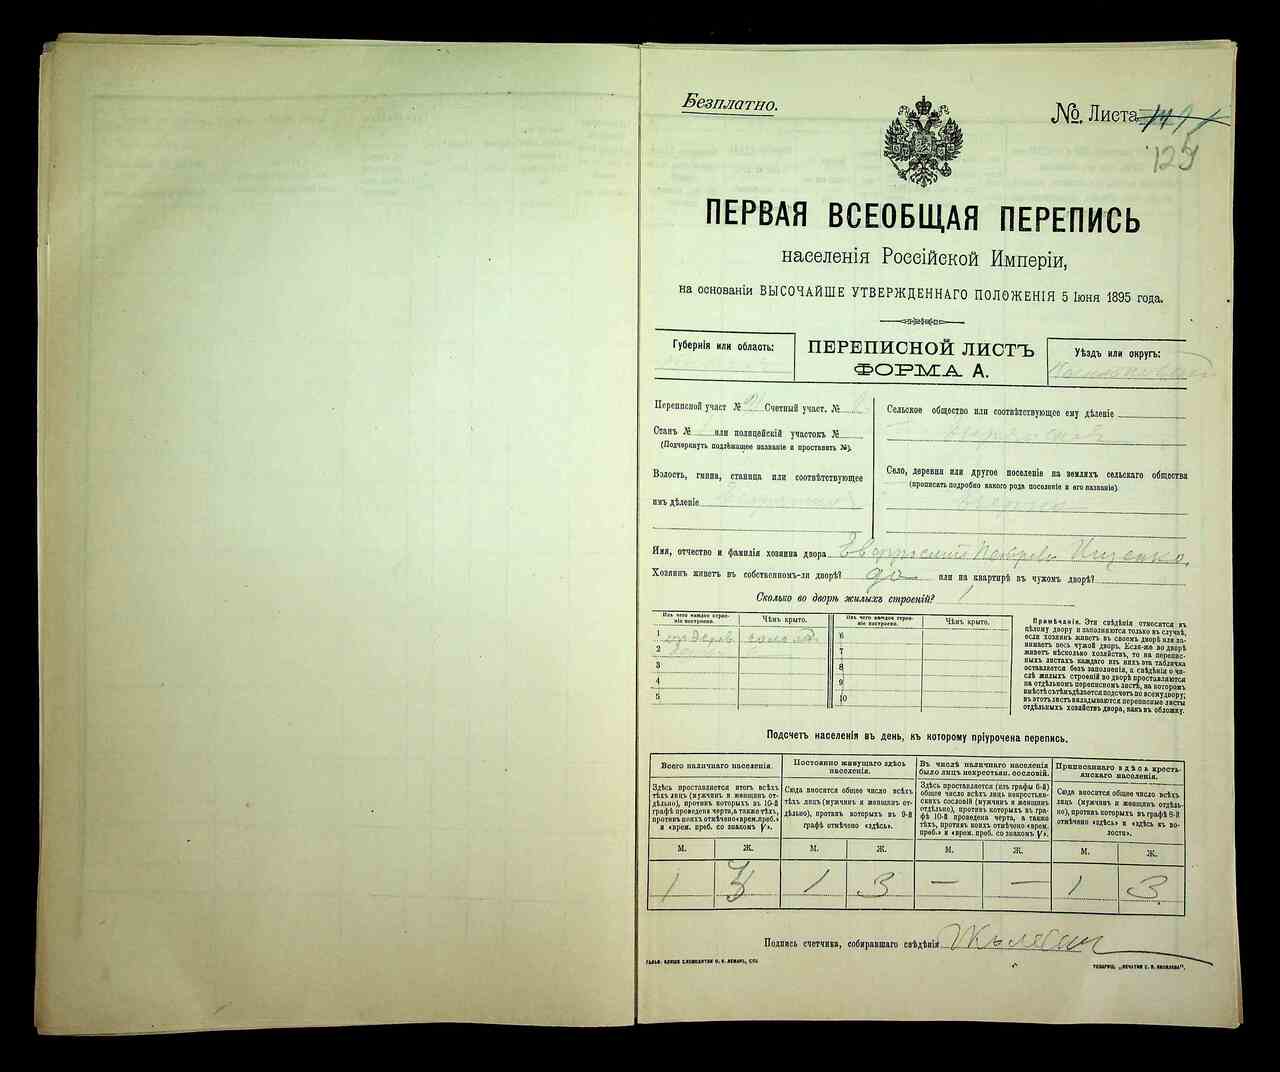 Безплатно.
№ Листа
125
ПЕРВАЯ ВСЕОБЩАЯ ПЕРЕПИСЬ
населенія Россійской Имперіи,
на основаніи ВЫСОЧАЙШЕ УТВЕРЖДЕННАГО ПОЛОЖЕНІЯ 5 Іюня 1895 года.
Губернія или область:
ПЕРЕПИСНОЙ ЛИСТЪ
ФОРМА А.
Уѣздъ или округъ:
Переписной участ № Счетный участ. №
Станъ № или полицейскій участокъ №
(Подчеркнуть подлежащее названіе и проставить №).
Волость, гмина, станица или соотвѣтствующее
имъ дѣленіе
Сельское общество или соотвѣтствующее ему дѣленіе
Село, деревня или другое поселеніе на земляхъ сельскаго общества
(прописать подробно какого рода поселеніе и его названіе).
Имя, отчество и фамилія хозяина двора Ищенко
Хозяинъ живетъ въ собственномъ-ли дворѣ? да или на квартирѣ въ чужомъ дворѣ?
Сколько во дворѣ жилыхъ строеній? 1
Изъ чего каждое строе-
ніе построено.
Чѣмъ крыто.
Изъ чего каждое строе-
ніе построено.
Чѣмъ крыто.
1
2
3
4
5
6
7
8
9
10
Примѣчаніе. Эти свѣдѣнія относятся къ
цѣлому двору и заполняются только въ случаѣ,
если хозяинъ живетъ въ своемъ дворѣ или за-
нимаетъ весь чужой дворъ. Если-же во дворѣ
живетъ нѣсколько хозяйствъ, то на перепис-
ныхъ листахъ каждаго изъ нихъ эта табличка
оставляется безъ заполненія, а свѣдѣнія о чи-
слѣ жилыхъ строеній во дворѣ проставляются
на отдѣльномъ переписномъ листѣ, на которомъ
вмѣстѣ съ тѣмъ дѣлается подсчетъ по всему двору;
въ этотъ листъ вкладываются переписные листы
отдѣльныхъ хозяйствъ двора, какъ въ обложку.
Подсчетъ населенія въ день, къ которому пріурочена перепись.
Всего наличнаго населенія.
Здѣсь проставляется итогъ всѣхъ
тѣхъ лицъ (мужчинъ и женщинъ от-
дѣльно), противъ которыхъ въ 10-й
графѣ проведена черта, а также тѣхъ,
противъ коихъ отмѣчено «врем. преб.»
и «врем. преб. со знакомъ V».
Постоянно живущаго здѣсь
населенія.
Сюда вносится общее число всѣхъ
тѣхъ лицъ (мужчинъ и женщинъ от-
дѣльно), противъ которыхъ въ 9-й
графѣ отмѣчено «здѣсь».
Въ числѣ наличнаго населенія
было лицъ некрестьян. сословій.
Здѣсь проставляется (изъ графы 6-й)
общее число всѣхъ лицъ некрестьян-
скихъ сословій (мужчинъ и женщинъ
отдѣльно), противъ которыхъ въ гра-
фѣ 10-й проведена черта, а также
тѣхъ, противъ коихъ отмѣчено «врем.
преб.» и «врем. преб. со знакомъ V».
Приписаннаго здѣсь кресть-
янскаго населенія.
Сюда вносится общее число всѣхъ
лицъ (мужчинъ и женщинъ отдѣль-
но), противъ которыхъ въ графѣ 8-й
отмѣчено «здѣсь» и «здѣсь въ во-
лости».
М. Ж. М. Ж. М. Ж. М. Ж.
1 3 1 3 — — 1 3
Подпись счетчика, собиравшаго свѣдѣнія